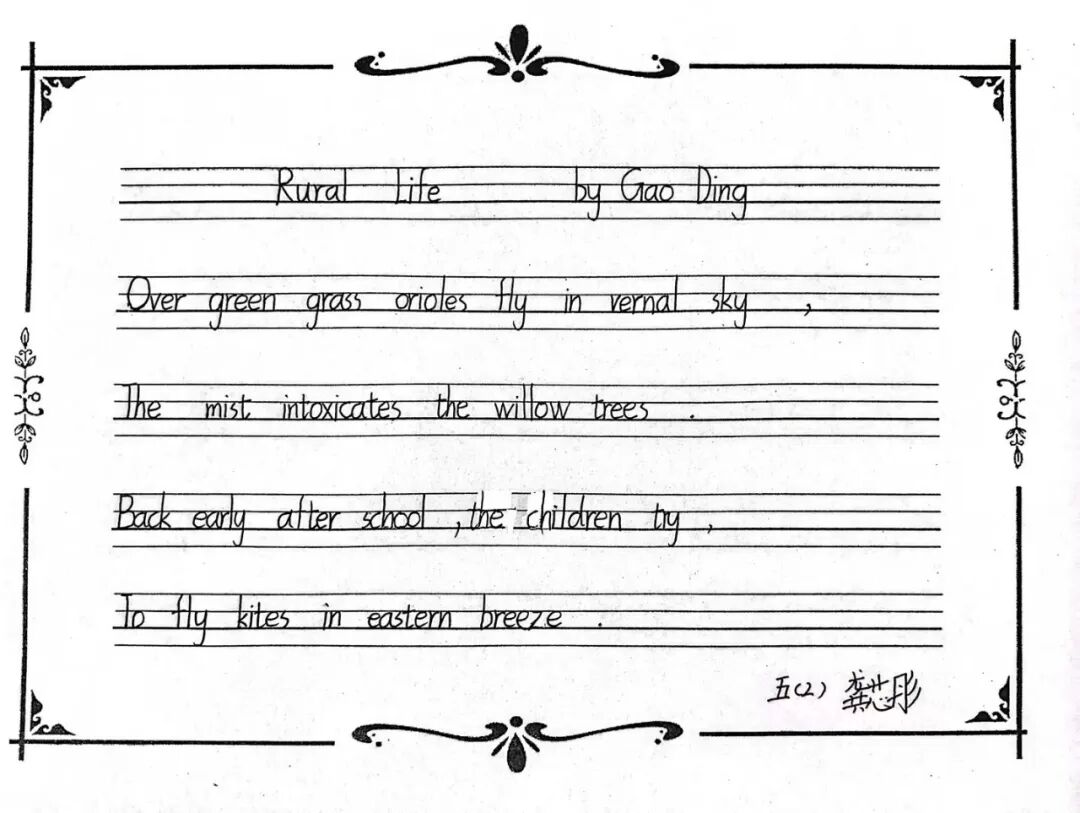 Rural Life by Gao Ding
Over green grass orioles fly in vernal sky ,
The mist intoxicates the willow trees .
Back early after school , the children try ,
To fly kites in eastern breeze .
五(2) 龚